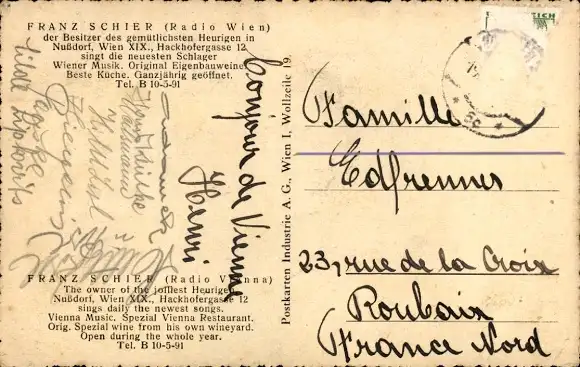 FRANZ SCHIER (Radio Wien)
der Besitzer des gemütlichsten Heurigen in
Nußdorf, Wien XIX., Hackhofergasse 12
singt die neuesten Schlager
Wiener Musik. Original Eigenbauweine
Beste Küche. Ganzjährig geöffnet.
Tel. B 10-5-91
Bonjour de Vienne
Henri
FRANZ SCHIER (Radio Vienna)
The owner of the jolliest Heurigen
Nußdorf, Wien XIX., Hackhofergasse 12
sings daily the newest songs.
Vienna Music. Spezial Vienna Restaurant.
Orig. Spezial wine from his own wineyard.
Open during the whole year.
Tel. B 10-5-91
Postkarten Industrie A. G., Wien I, Wollzeile 19.
Famille
Edfrennes
23, rue de la Croix
Roubaix
France Nord